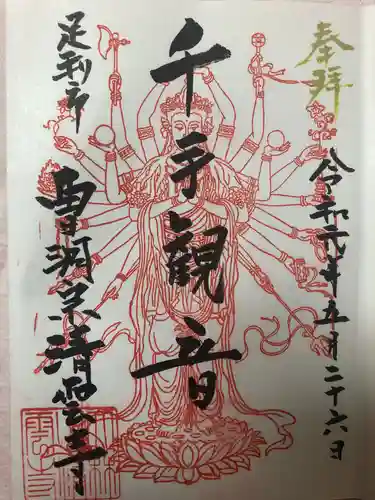 奉拝
令和元年五月二十六日
千手観音
足利市
曹洞宗清雲寺